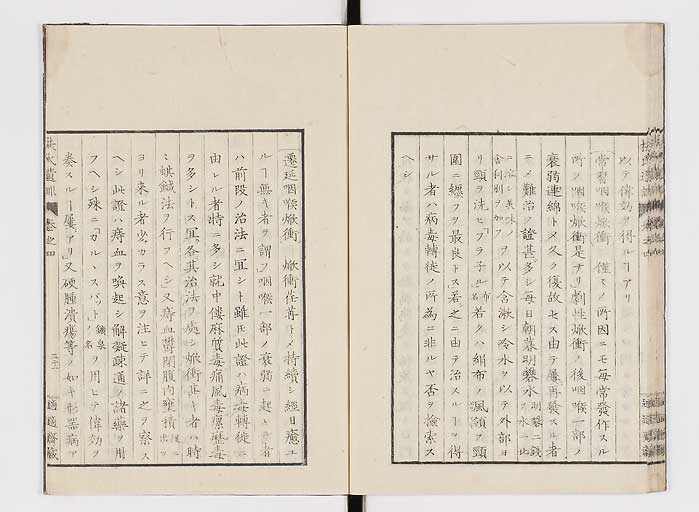 以テ偉効ヲ得ルヿアリ
常習咽喉焮衝 僅ミノ所因ニモ毎常發作スル
所ノ咽喉焮衝是ナリ劇性焮衝ノ後咽喉一部ノ
衰弱連綿トメ久ク復故セス由テ屢再發スル者
ニメ難治ノ證甚多シ毎日朝暮明礬水
ヲ以テ含漱シ冷水ヲ以テ外部ヨ
リ頸ヲ洗ヒ「フラ子ル」若クハ絹布ノ
圍ニ纏フヲ最良トス若之ニ由テ治スルヿヲ得
サル者ハ病毒轉徙ノ所為ニ非ルヤ否ヲ檢索ス
ヘシ
遷延咽喉焮衝 焮衝荏苒トメ持續シ經日癒ユ
ルヿ無キ者ヲ謂フ咽喉一部ノ衰弱ニ起
ハ前段ノ治法ニ冝シト雖𪜈此證ハ病毒轉徙ニ
由レル者特ニ多シ就中僂麻質毒痛風毒瘰癧毒
ヲ多シトス冝ク各其治法ヲ處シ焮衝甚キ者ハ時
ミ蜞鍼法ヲ行フヘシ又痔血
ヨリ来ル者少カラス意ヲ注ヒテ詳ニ之ヲ察ス
ヘシ此證ハ痔血ヲ喚起シ解凝疎通ノ諸藥ヲ用
フヘシ殊ニ「カルヽスバット」ヲ用ヒテ偉効ヲ
奏スルヿ屢アリ又硬腫潰瘍等ノ如キ形器病ア
卷之四
適適齋藏